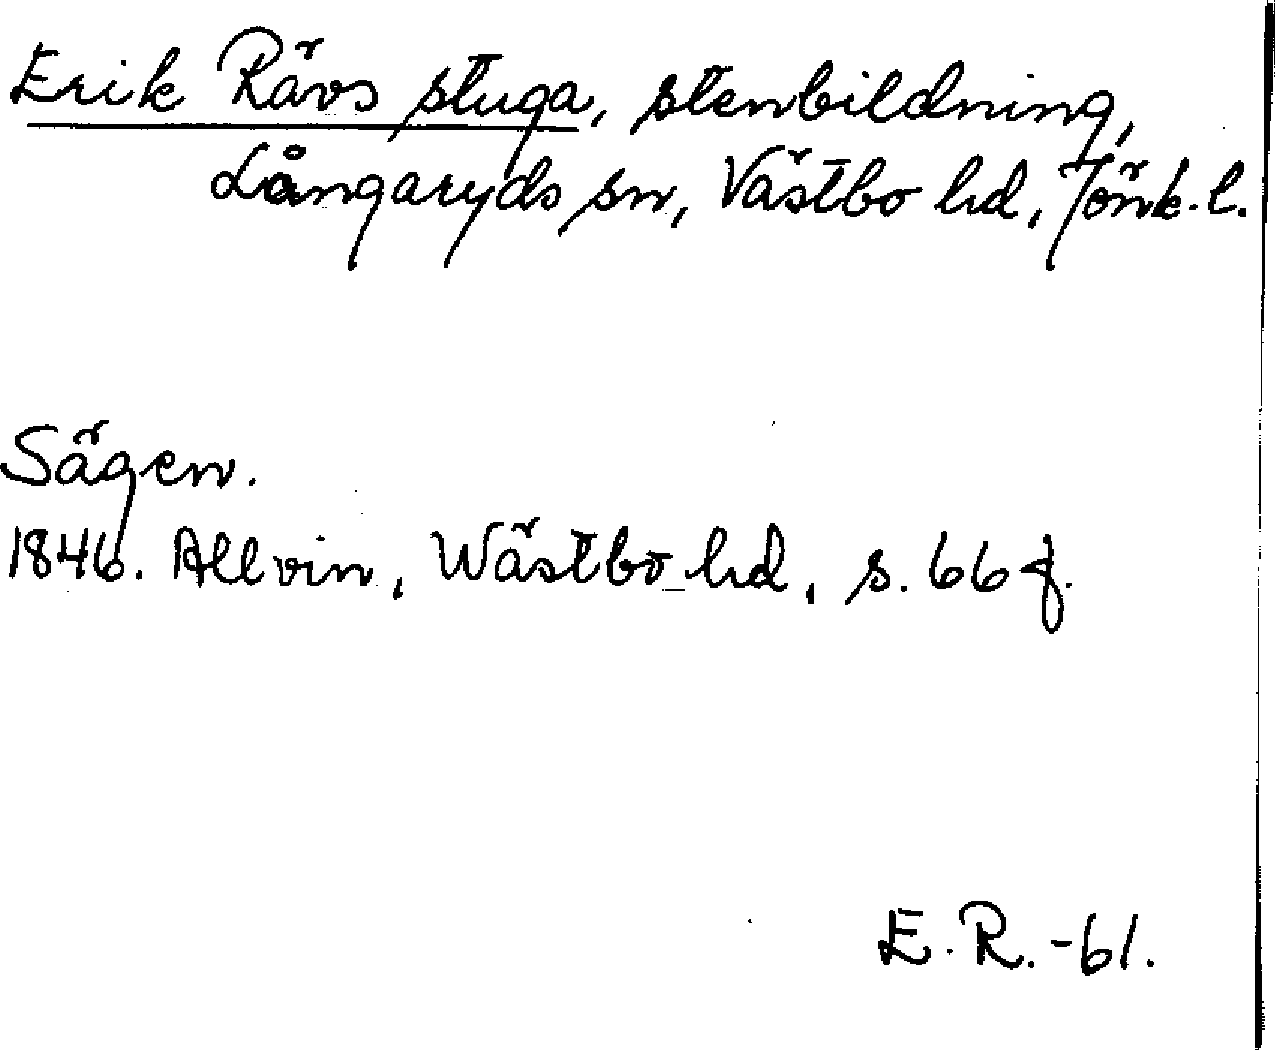 Erik Rävs stuga, stenbildning,
Långaryds sn, Västbo hd, Jönk. l.
Sägen.
1846. Allvin, Wästbo hd, s. 66 f.
E. R. -61.